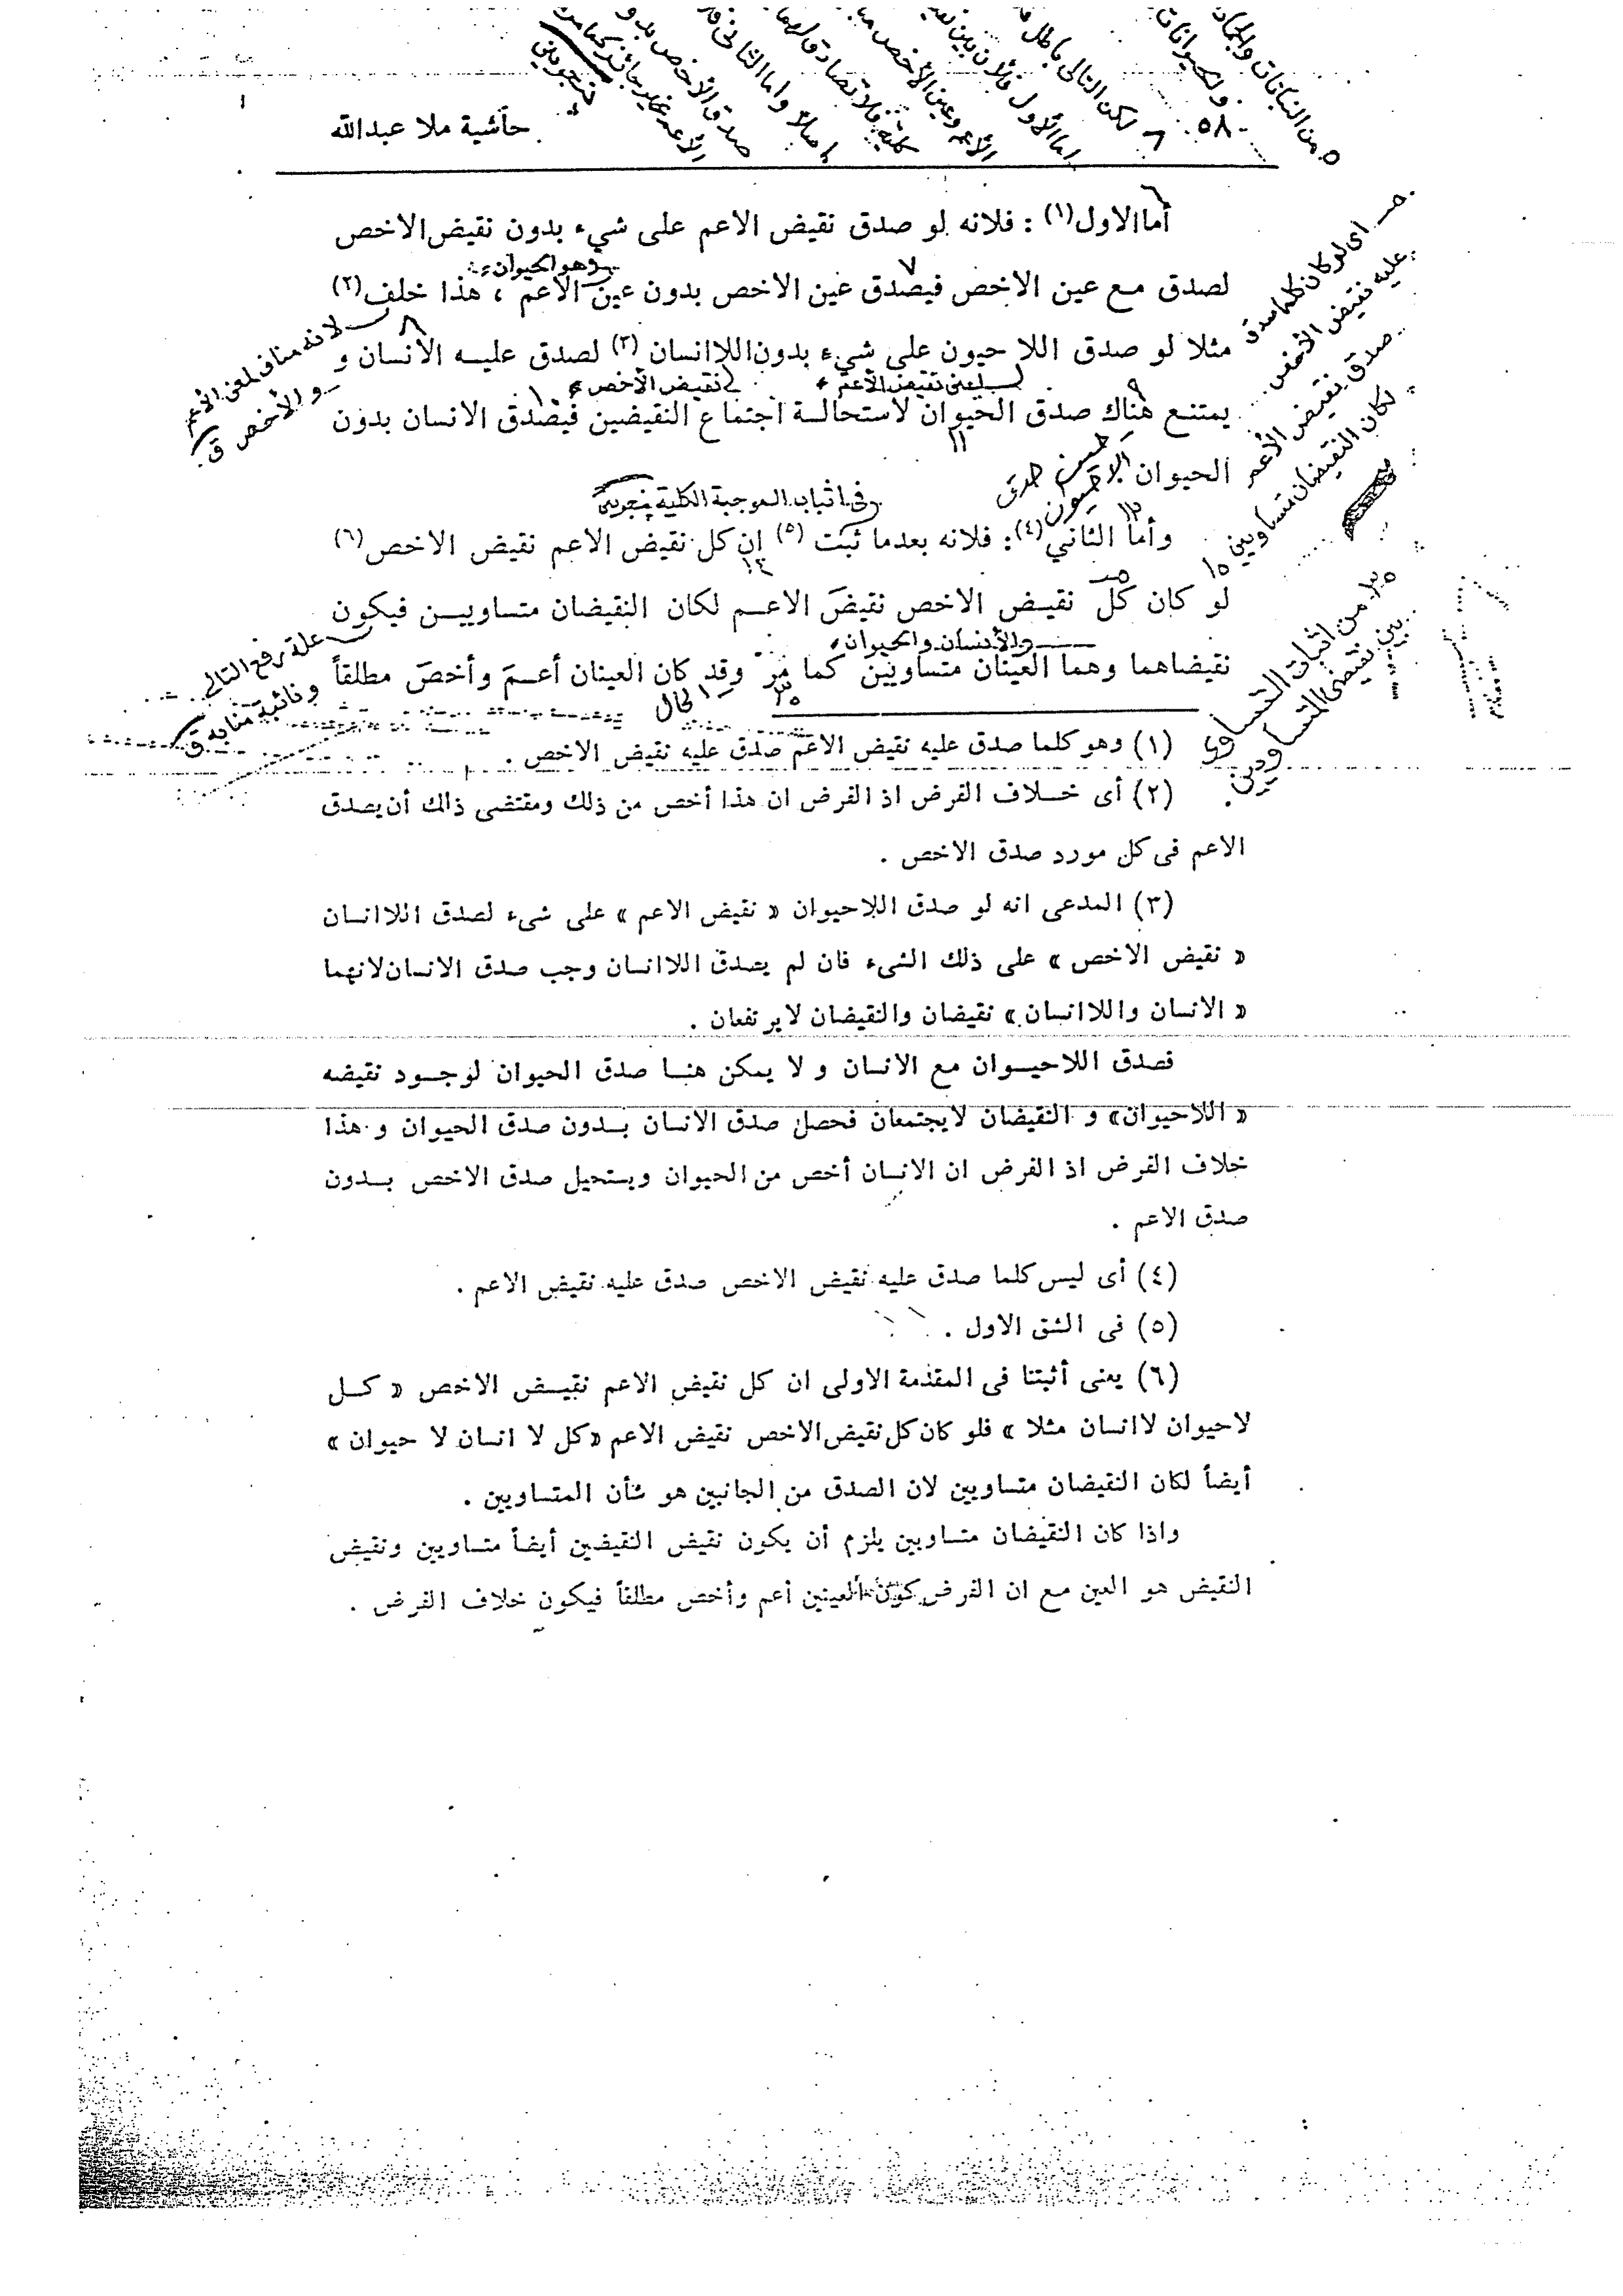 -٥٨-
حاشية ملا عبدالله
أما الاول(١) : فلانه لو صدق نقيض الاعم على شيء بدون نقيض الاخص
وهو الحيوان
لصدق مع عين الاخص فيصدق عين الاخص بدون عين الاعم ، هذا خلف(٢)
مثلا لو صدق اللا حيون على شيء بدون اللاانسان (٣) لصدق عليه الانسان و
لانه مناف لمعنى الأعم
والأخص ق
يعنى نقيض الأعم
نقيض الأخص
يمتنع هناك صدق الحيوان لاستحالة اجتماع النقيضين فيصدق الانسان بدون
الحيوان
فى اثبات الموجبة الكلية
وأما الثاني(٤): فلانه بعدما ثبت (٥) ان كل نقيض الاعم نقيض الاخص(٦)
لو كان كل نقيض الاخص نقيض الاعم لكان النقيضان متساويين فيكون
والأنسان والحيوان
نقيضاهما وهما العينان متساويين كما مر وقد كان العينان أعم وأخص مطلقاً
علة رفع التالى
اى لو كان كلما صدق
عليه نقيض الأخص
صدق نقيض الأعم
لكان النقيضان متساويين
من اثبات التساوى
بين نقيضى المتساويين
(١) وهو كلما صدق عليه نقيض الاعم صدق عليه نقيض الاخص .
(٢) أى خلاف الفرض اذ الفرض ان هذا أخص من ذلك ومقتضى ذالك أن يصدق
الاعم فى كل مورد صدق الاخص .
(٣) المدعى انه لو صدق اللاحيوان « نقيض الاعم » على شىء لصدق اللاانسان
« نقيض الاخص » على ذلك الشىء فان لم يصدق اللاانسان وجب صدق الانسان لانهما
« الانسان واللاانسان » نقيضان والنقيضان لايرتفعان .
فصدق اللاحيوان مع الانسان و لا يمكن هنا صدق الحيوان لوجود نقيضه
« اللاحيوان» و النقيضان لايجتمعان فحصل صدق الانسان بدون صدق الحيوان و هذا
خلاف الفرض اذ الفرض ان الانسان أخص من الحيوان ويستحيل صدق الاخص بدون
صدق الاعم .
(٤) أى ليس كلما صدق عليه نقيض الاخص صدق عليه نقيض الاعم .
(٥) فى الشق الاول .
(٦) يعنى أثبتنا فى المقدمة الاولى ان كل نقيض الاعم نقيض الاخص « كل
لاحيوان لاانسان مثلا » فلو كان كل نقيض الاخص نقيض الاعم «كل لا انسان لا حيوان »
أيضاً لكان النقيضان متساويين لان الصدق من الجانبين هو شأن المتساويين .
واذا كان النقيضان متساويين يلزم أن يكون نقيض النقيضين أيضاً متساويين ونقيض
النقيض هو العين مع ان الفرض كون العينين أعم وأخص مطلقاً فيكون خلاف الفرض .